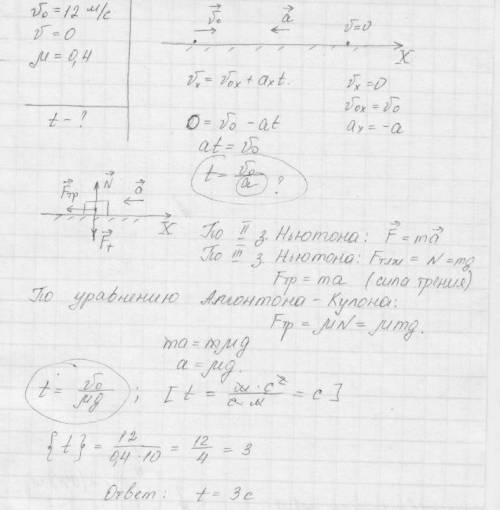 v₀ = 12 м/с
v = 0
μ = 0,4
t - ?
v⃗₀ a⃗ v=0
X
vₓ = v₀ₓ + aₓt.
vₓ = 0
v₀ₓ = v₀
aₓ = -a
0 = v₀ - at
at = v₀
t = v₀/a ?
F⃗тр N⃗ a⃗
F⃗т X
По II з. Ньютона: F⃗ = ma⃗
По III з. Ньютона: Fтяж = N = mg
Fтр = ma (сила трения)
По уравнению Амонтона - Кулона:
Fтр = μN = μmg.
ma = mμg
a = μg.
t = v₀/μg ; [t = м · с²/с · м = с]
{t} = 12/0,4·10 = 12/4 = 3
Ответ: t = 3 с